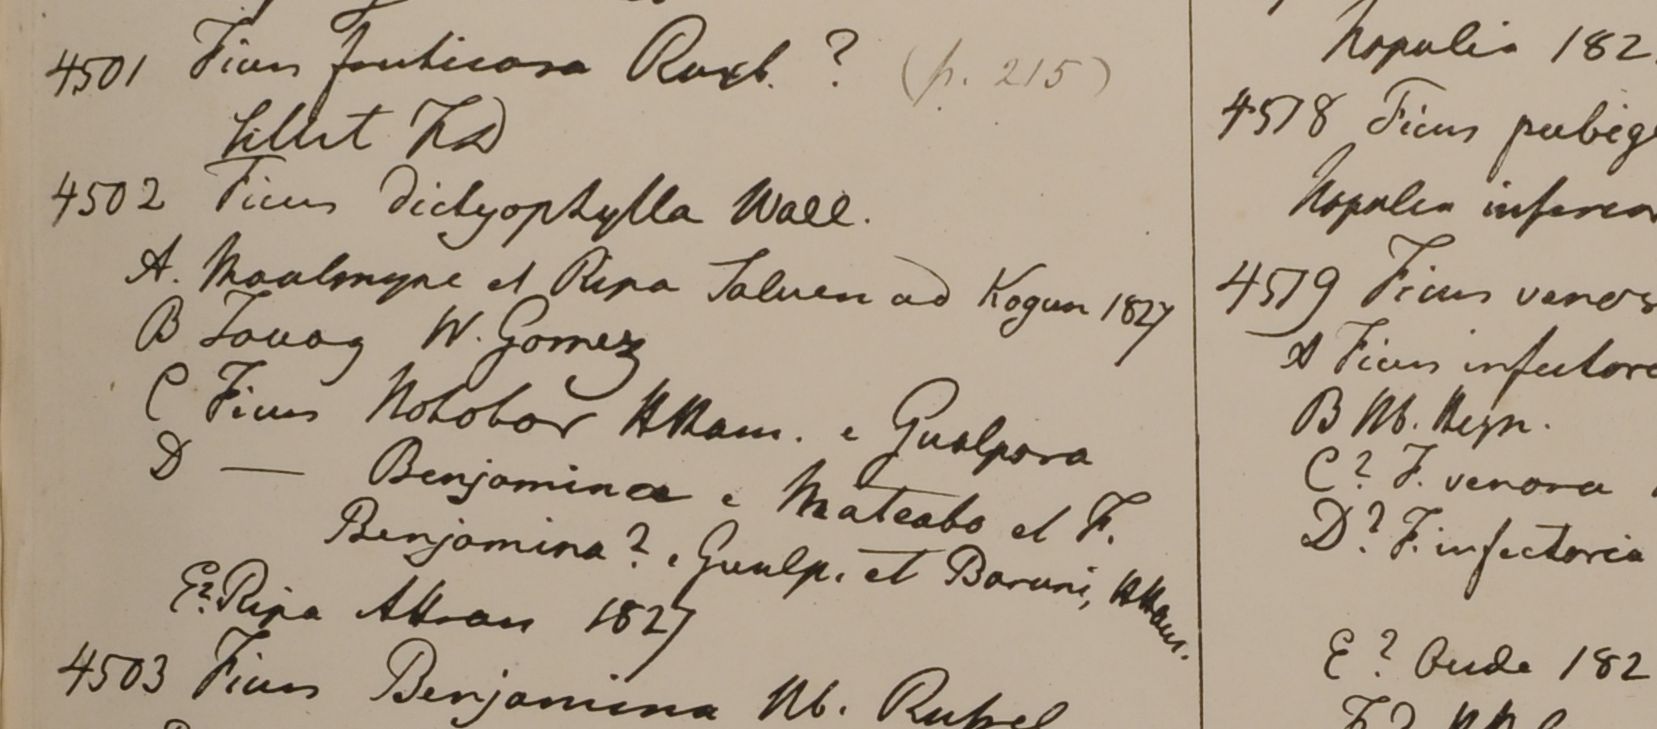 4501 Ficus fruticosa Roxb. ? (p. 215)
Silhet
4502 Ficus dictyophylla Wall.
A. Moulmyne et Ripa Saluen ad Kogun 1827
B Tavoy W. Gomez
C Ficus Notobor HHam. e Gualpora
D — Benjaminea e Mateabo et F.
Benjamina ? e Gualp. et Baruni, HHam.
E? Ripa Attran 1827
4503 Ficus Benjamina Hb. Russel
Napalia 182
4518 Ficus pubig
Napalia inferior
4519 Ficus venos
A Ficus infectori
B Hb. Heyn.
C? F. venosa
D? F. infectoria
E? Oude 182